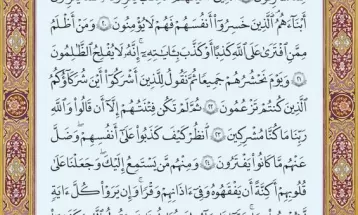 أَبْنَآءَهُمُ ٱلَّذِينَ خَسِرُوٓا۟ أَنفُسَهُمْ فَهُمْ لَا يُؤْمِنُونَ ٢٠ وَمَنْ أَظْلَمُ
مِمَّنِ ٱفْتَرَىٰ عَلَى ٱللَّهِ كَذِبًا أَوْ كَذَّبَ بِـَٔايَـٰتِهِۦٓ إِنَّهُۥ لَا يُفْلِحُ ٱلظَّـٰلِمُونَ
٢١ وَيَوْمَ نَحْشُرُهُمْ جَمِيعًا ثُمَّ نَقُولُ لِلَّذِينَ أَشْرَكُوٓا۟ أَيْنَ شُرَكَآؤُكُمُ
ٱلَّذِينَ كُنتُمْ تَزْعُمُونَ ٢٢ ثُمَّ لَمْ تَكُن فِتْنَتُهُمْ إِلَّآ أَن قَالُوا۟ وَٱللَّهِ
رَبِّنَا مَا كُنَّا مُشْرِكِينَ ٢٣ ٱنظُرْ كَيْفَ كَذَبُوا۟ عَلَىٰٓ أَنفُسِهِمْ وَضَلَّ
عَنْهُم مَّا كَانُوا۟ يَفْتَرُونَ ٢٤ وَمِنْهُم مَّن يَسْتَمِعُ إِلَيْكَ وَجَعَلْنَا عَلَىٰ
قُلُوبِهِمْ أَكِنَّةً أَن يَفْقَهُوهُ وَفِىٓ ءَاذَانِهِمْ وَقْرًا وَإِن يَرَوْا۟ كُلَّ ءَايَةٍ